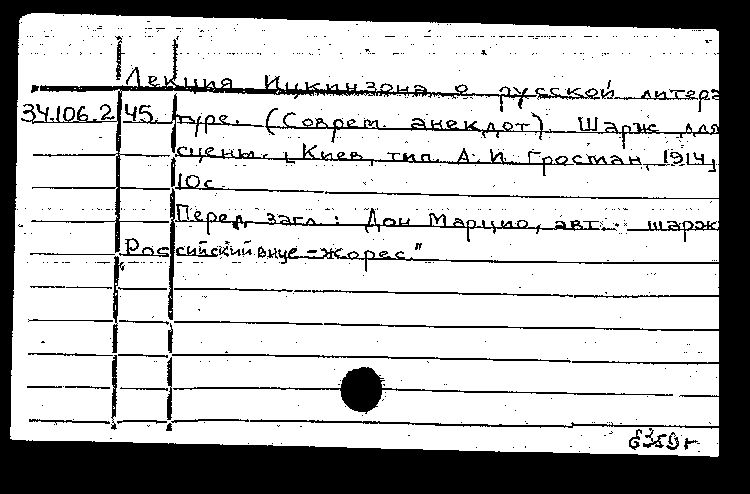 Лекция Ицкинзона о русской литера
34.106.2 45. туре. (Соврем. анекдот). Шарж для
сцены. [Киев, тип. А. И. Гросман, 1914]
10с.
Перед загл.: Дон Марцио, авт. шарж
"Российский вице-жорес."